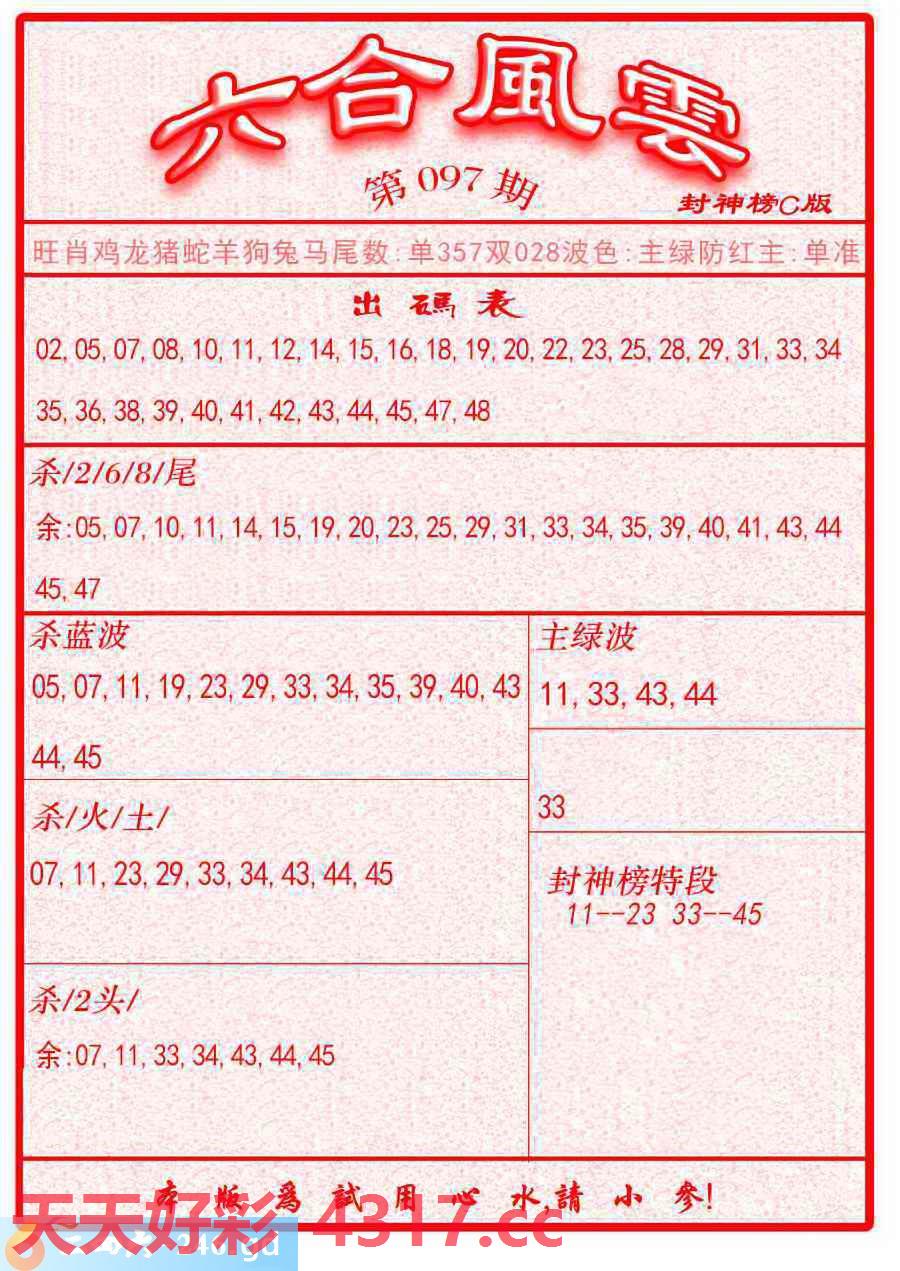 六合風雲
第097期
封神榜C版
旺肖鸡龙猪蛇羊狗兔马尾数:单357双028波色:主绿防红主:单准
出碼表
02,05,07,08,10,11,12,14,15,16,18,19,20,22,23,25,28,29,31,33,34
35,36,38,39,40,41,42,43,44,45,47,48
杀/2/6/8/尾
余:05,07,10,11,14,15,19,20,23,25,29,31,33,34,35,39,40,41,43,44
45,47
杀蓝波
05,07,11,19,23,29,33,34,35,39,40,43
44,45
主绿波
11,33,43,44
33
杀/火/土/
07,11,23,29,33,34,43,44,45
封神榜特段
11--23 33--45
杀/2头/
余:07,11,33,34,43,44,45
本版爲試用心水,請小參!
天天好彩 4317.cc
246.gd